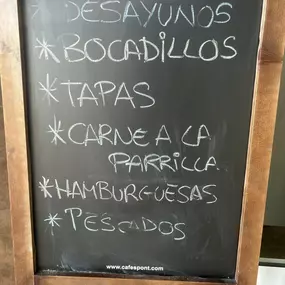 * DESAYUNOS
* BOCADILLOS
* TAPAS
* CARNE A LA
PARRILLA
* HAMBURGUESAS
* PESCADOS
www.cafespont.com